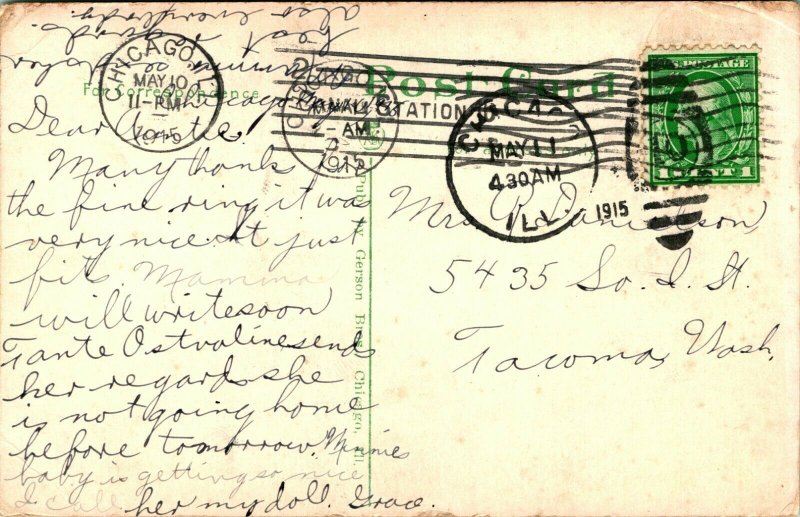 also everybody.
best regards
Chicago
Post Card
For Correspondence
CHICAGO, ILL
MAY 10
11-PM
1915
STATION
-AM
CHICA
MAY 11
430AM
1915
ILL.
U.S. POSTAGE
1 CENT 1
Dear Auntie.
Many thanks
the fine ring it was
very nice. It just
fits. Mamma
will write soon
Tante Ostvoline sends
her regards she
is not going home
before tomorrow. Minnies
baby is getting so nice
I call her my doll. Grace.
Mrs. R. Danielson
5435 So. I. St.
Tacoma, Wash.
Pub. by Gerson Bros. Chicago, Ill.